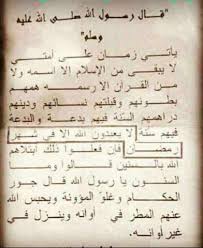 "قال رسول الله صلى الله عليه
وسلم"
يأتي زمان على أمتي
لا يبقى من الإسلام إلا اسمه ولا
من القرآن إلا رسمه همهم
بطونهم وقبلتهم نسائهم ودينهم
دراهمهم السنة فيهم بدعة والبدعة
فيهم سنة لا يعبدون الله الا في شهر
رمضان فإن فعلوا ذلك أبتلاهم
الله بالسنين قالوا وما
السنون يا رسول الله قال جور
الحكام وغلو المؤونة ويحبس الله
عنهم المطر في أوانه وينزل في
غير أوانه.